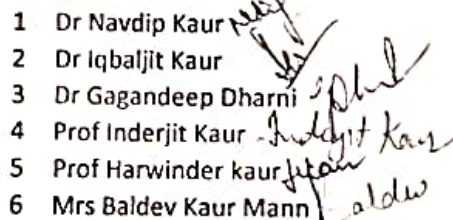 1 Dr Navdip Kaur
2 Dr Iqbaljit Kaur
3 Dr Gagandeep Dharni
4 Prof Inderjit Kaur Inderjit Kaur
5 Prof Harwinder kaur
6 Mrs Baldev Kaur Mann